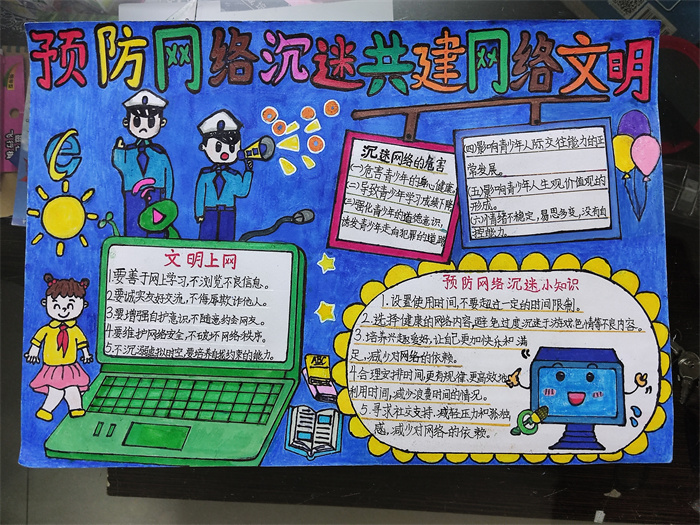 预防网络沉迷共建网络文明
沉迷网络的危害
(一)危害青少年的身心健康,
(二)导致青少年学习成绩下降
(三)强化青少年的道德意识,
诱发青少年走向犯罪的道路
(四)影响青少年人际交往能力的正
常发展。
(五)影响青少年人生观,价值观的
形成。
(六)情绪不稳定,易思多变,没有自
控能力.
文明上网
1.要善于网上学习,不浏览不良信息。
2.要诚实友好交流,不侮辱欺诈他人。
3.要增强自护意识,不随意约会网友。
4.要维护网络安全,不破坏网络秩序。
5.不沉溺虚拟时空,要培养自我约束的能力。
预防网络沉迷小知识
1.设置使用时间,不要超过一定的时间限制。
2.选择健康的网络内容,避免过度沉迷于游戏色情等不良内容。
3.培养兴趣爱好,让自己更加快乐和满
足,减少对网络的依赖。
4合理安排时间,更有规律,更高效地
利用时间,减少浪费时间的情况。
5.寻求社交支持,减轻压力和孤独
感,减少对网络的依赖。